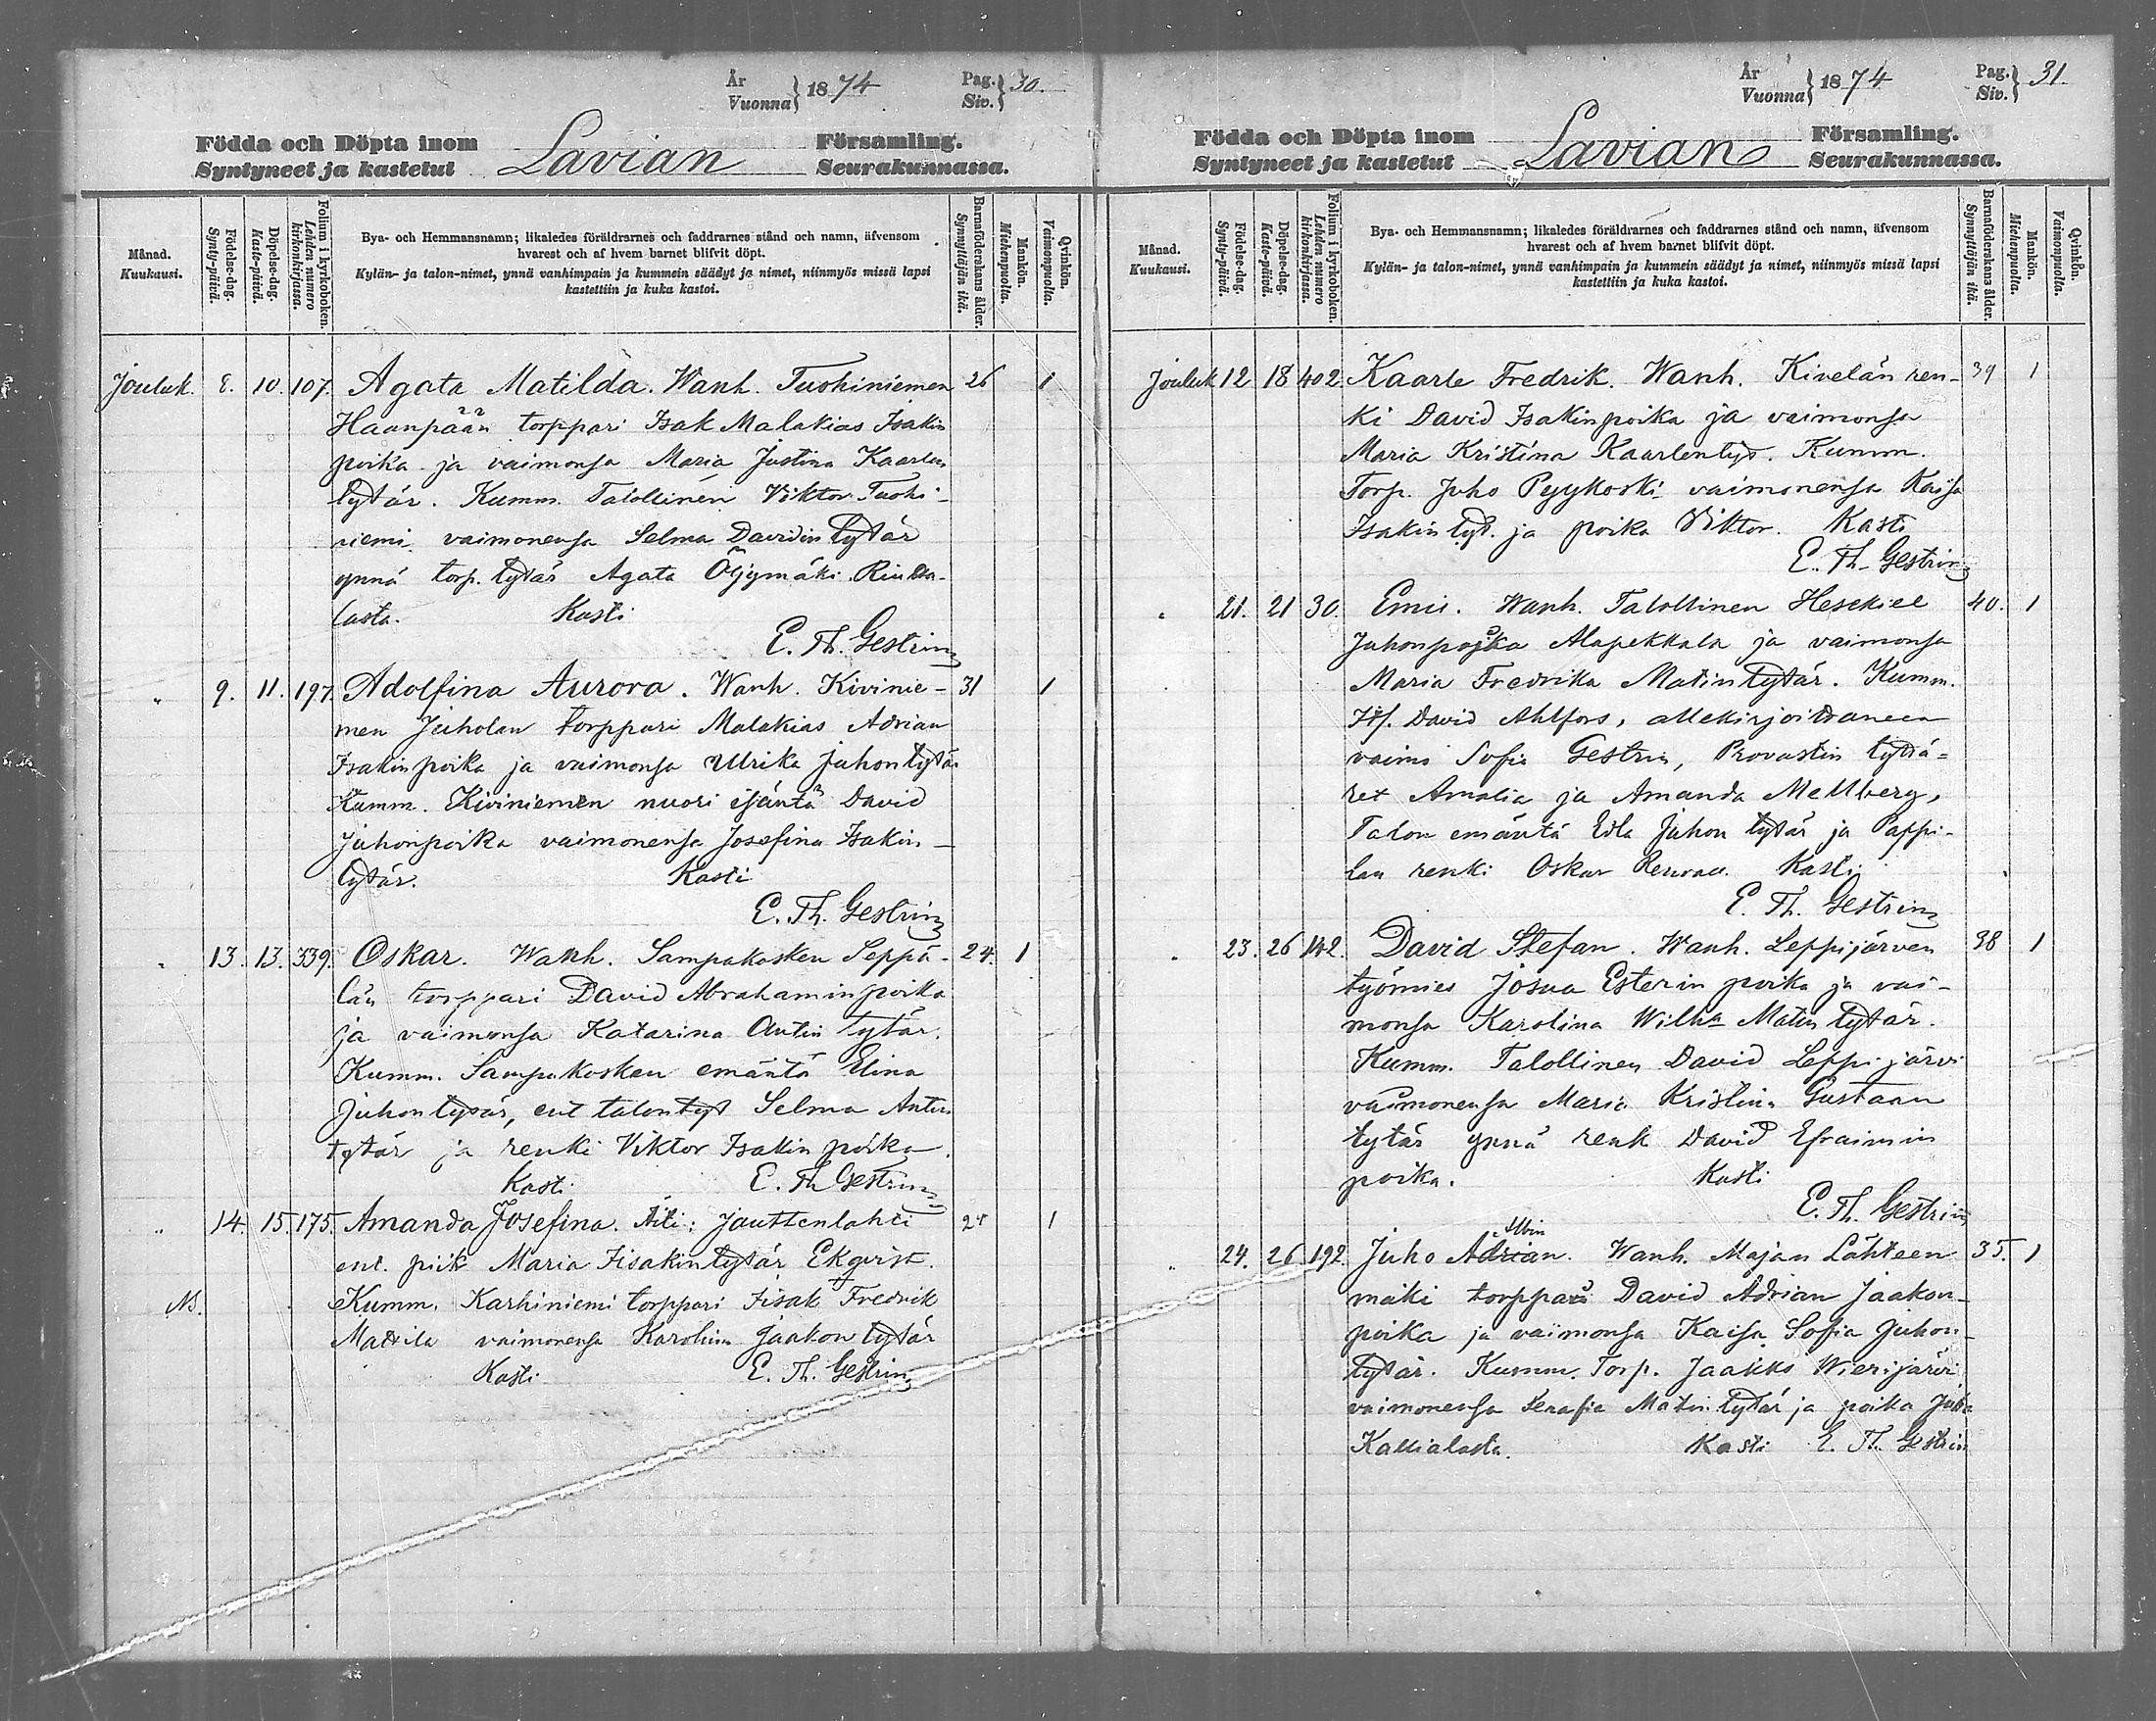 År
Vuonna} 1874
Pag.
Siv.} 30.
Födda och Döpta inom
Syntyneet ja kastetut
Lavian
Församling.
Seurakunnassa.
Månad.
Kuukausi.
Födelse-dag.
Synty-päivä.
Döpelse-dag.
Kaste-päivä.
Folium i kyrkoboken.
Lehden numero
kirkonkirjassa.
Bya- och Hemmansnamn; likaledes föräldrarnes och faddrarnes stånd och namn, äfvensom
hvarest och af hvem barnet blifvit döpt.
Kylän- ja talon-nimet, ynnä vanhimpain ja kummein säädyt ja nimet, niinmyös missä lapsi
kastettiin ja kuka kastoi.
Barnaföderskans ålder.
Synnyttäjän ikä.
Mankön.
Miehenpuolia.
Qvinkön.
Vaimonpuolia.
Jouluk. 8. 10. 107. Agata Matilda. Wanh. Tuohiniemen 26 1
Haanpään torppari Isak Malakias Isakin
poika ja vaimonsa Maria Justina Kaarlen
tytär. Kumm. Talollinen Viktor Tuohi-
niemi vaimonensa Selma Davidin tytär
ynnä torp. tytär Agata Öljymäki
lasta. Kasti
E. Th. Gestrin
" 9. 11. 197. Adolfina Aurora. Wanh. Kivinie- 31 1
men Juholan torppari Malakias Adrian
Isakin poika ja vaimonsa Ulrika Juhon tytär
Kumm. Kiviniemen nuori isäntä David
Juhonpoika vaimonensa Josefina Isakin-
tytär. Kasti
E. Th. Gestrin
" 13. 13. 339. Oskar. Wanh. Sampakosken Seppä- 24. 1
län torppari David Abrahamin poika
ja vaimonsa Katarina Antin tytär.
Kumm. Sampakosken emäntä Elina
Juhon tytär, ent talon tyt Selma Antin
tytär ja renki Viktor Isakin poika.
Kasti E. Th Gestrin
" 14. 15. 175. Amanda Josefina. Äiti: Jauttenlahti 24 1
ent. piik Maria Iisakin tytär Ekqvist.
Nb. Kumm. Karhiniemi torppari Iisak Fredrik
Mattila vaimonensa Karolina Jaakon tytär
Kasti E. Th. Gestrin
År
Vuonna} 1874
Pag.
Siv.} 31.
Födda och Döpta inom
Syntyneet ja kastetut
Lavian
Församling.
Seurakunnassa.
Månad.
Kuukausi.
Födelse-dag.
Synty-päivä.
Döpelse-dag.
Kaste-päivä.
Folium i kyrkoboken.
Lehden numero
kirkonkirjassa.
Bya- och Hemmansnamn; likaledes föräldrarnes och faddrarnes stånd och namn, äfvensom
hvarest och af hvem barnet blifvit döpt.
Kylän- ja talon-nimet, ynnä vanhimpain ja kummein säädyt ja nimet, niinmyös missä lapsi
kastettiin ja kuka kastoi.
Barnaföderskans ålder.
Synnyttöjän ikä.
Mankön.
Miehenpuolia.
Qvinkön.
Vaimonpuolia.
Jouluk 12 18 402 Kaarle Fredrik. Wanh. Kivelän ren- 39 1
ki David Isakinpoika ja vaimonsa
Maria Kristina Kaarlentyt. Kumm.
Torp. Juho Pyykoski vaimonensa Kaisa
Isakin tyt. ja poika Viktor. Kasti
E. Th. Gestrin
" 21. 21 30. Emil. Wanh. Talollinen Hesekiel 40. 1
Juhonpoika Alapekkala ja vaimonsa
Maria Fredrika Matin tytär. Kumm.
David Ahlfors, allekirjoittaneen
vaimo Sofia Gestrin, Provastin tyttä-
ret Amalia ja Amanda Mellberg,
Talon emäntä Eva Juhon tytär ja Pappi-
lan renki Oskar Kasti
E. Th. Gestrin
" 23. 26 142. David Stefan. Wanh. Leppijärven 38 1
työmies Josua Esterin poika ja vai-
monsa Karolina Wilha Matin tytär.
Kumm. Talollinen David Leppijärvi
vaimonensa Maria Kristina Gustaan
tytär ynnä renk David Efraimin
poika. Kasti
E. Th. Gestrin
Albin
" 24. 26 192. Juho Adrian. Wanh. Majan Lähteen 35. 1
mäki torppari David Adrian Jaakon-
poika ja vaimonsa Kaisa Sofia Juhon-
tytär. Kumm. Torp. Jaakko Wierijärvi
vaimonensa Serafia Matin tytär ja poika Juha
Kallialasta. Kasti E. Th. Gestrin